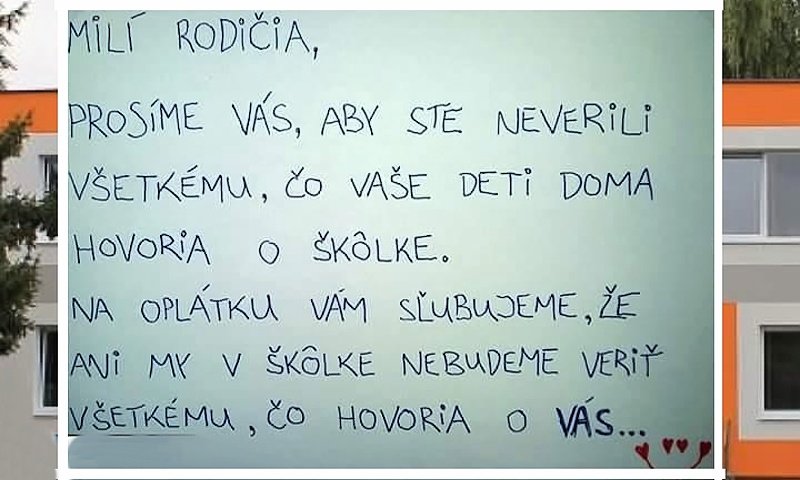 MILÍ RODIČIA,
PROSÍME VÁS, ABY STE NEVERILI
VŠETKÉMU, ČO VAŠE DETI DOMA
HOVORIA O ŠKÔLKE.
NA OPLÁTKU VÁM SĽUBUJEME, ŽE
ANI MY V ŠKÔLKE NEBUDEME VERIŤ
VŠETKÉMU, ČO HOVORIA O VÁS...